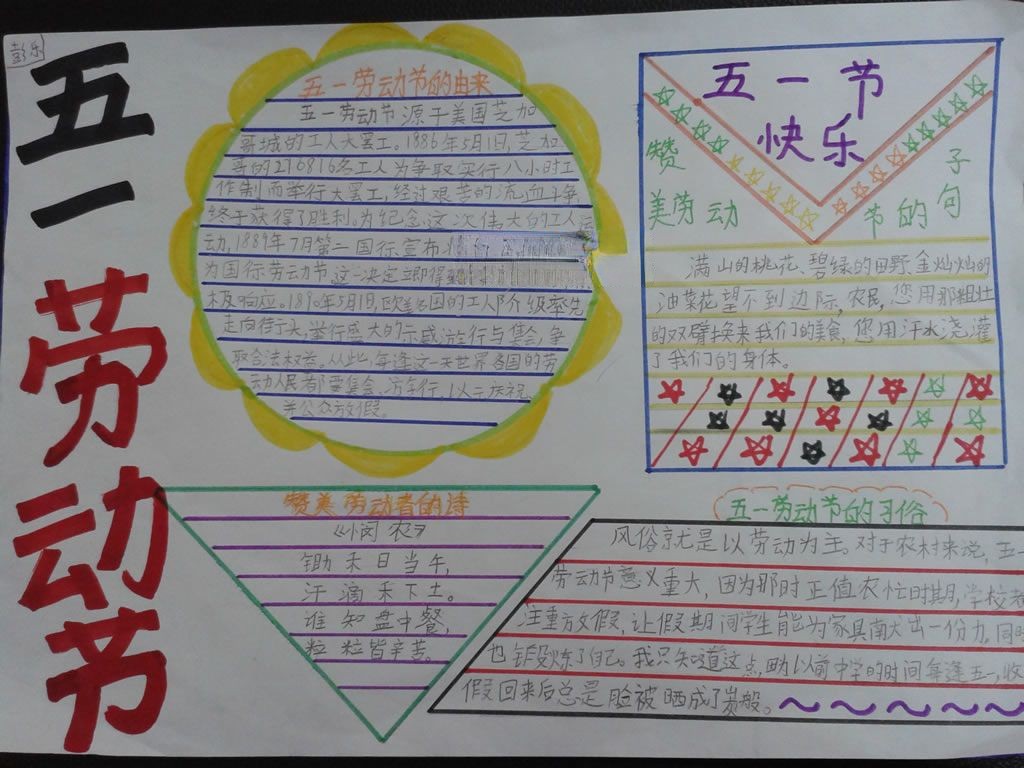 彭乐
五一劳动节
五一劳动节的由来
五一劳动节源于美国芝加
哥城的工人大罢工。1886年5月1日,芝加
哥的216816名工人为争取实行八小时工
作制而举行大罢工,经过艰苦的流血斗争,
终于获得了胜利。为纪念这次伟大的工人运
动,1889年7月第二国际宣布
为国际劳动节。这一决定立即得
极响应。1890年5月1日,欧美各国的工人阶级率先
走向街头,举行盛大的示威游行与集会,争
取合法权益。从此,每逢这一天世界各国的劳
动人民都要集会、游行,以示庆祝,
并公众放假。
五一节
快乐
赞美劳动节的句子
满山的桃花、碧绿的田野,金灿灿的
油菜花望不到边际,农民,您用那粗壮
的双臂换来我们的美食,您用汗水浇灌
了我们的身体。
赞美劳动者的诗
《悯农》
锄禾日当午,
汗滴禾下土。
谁知盘中餐,
粒粒皆辛苦。
五一劳动节的习俗
风俗就是以劳动为主。对于农村来说,五一
劳动节意义重大,因为那时正值农忙时期,学校者
注重方文假,让假期间学生能为家里献出一份力,同时
也锻炼了自己。我只知道这点,以前中学的时间每逢五一,收
假回来后总是脸被晒成了炭般。